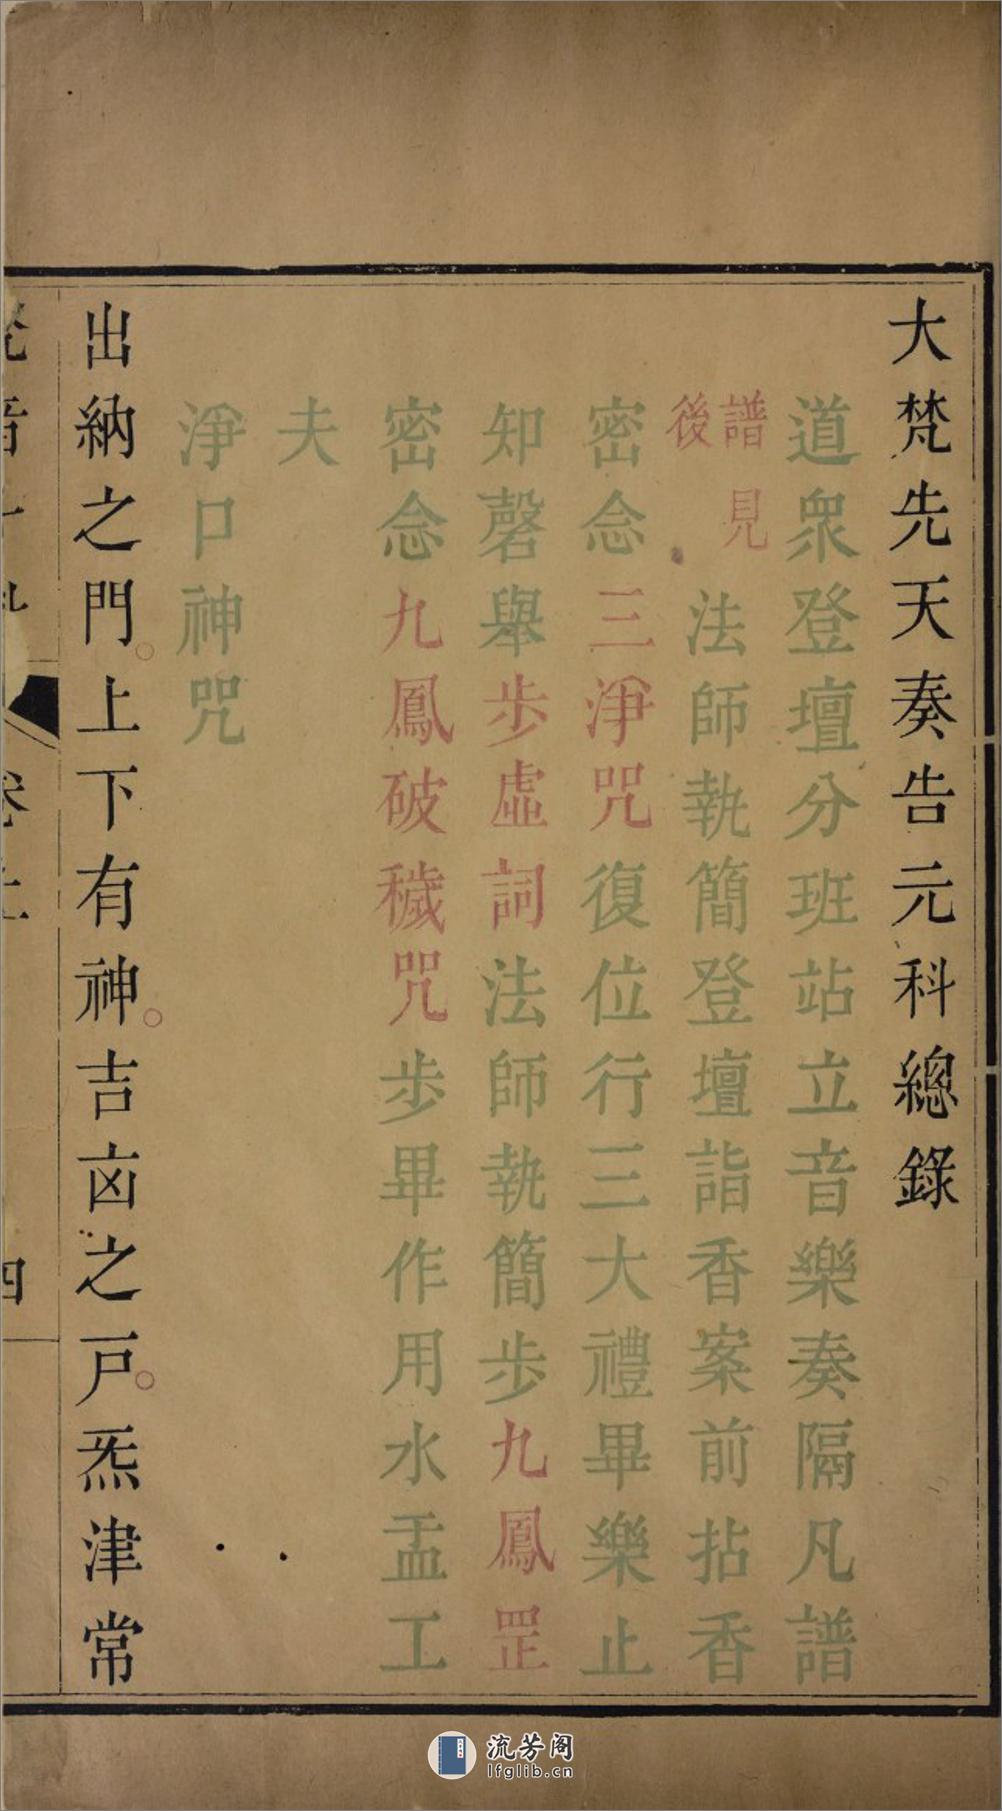 大梵先天奏告元科總錄
道眾登壇分班站立音樂奏隔凡譜
譜見
後
法師執簡登壇詣香案前拈香
密念三淨咒復位行三大禮畢樂止
知磬舉步虛詞法師執簡步九鳳罡
密念九鳳破穢咒步畢作用水盂工
夫
淨口神咒
出納之門。上下有神。吉凶之戸。炁津常
四
流芳阁
lfglib.cn